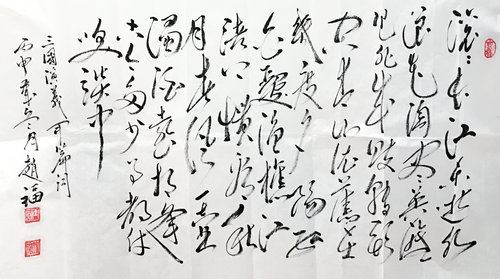 滚々长江东逝水
浪花淘尽英雄
是非成败转头
空青山依旧在
几度夕阳红
白发渔樵江
渚上惯看秋
月春风一壶
浊酒喜相逢
古今多少事都付
笑谈中
三國演義开篇词
丙申年冬月趙福